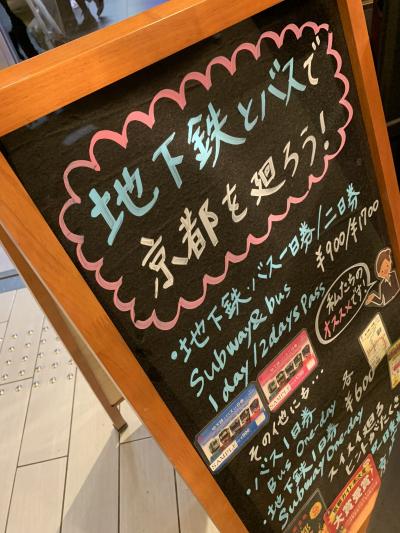 地下鉄とバスで
京都を廻ろう!
・地下鉄・バス一日券/二日券
Subway&bus ¥900/¥1700
1day/2days Pass
私たちの
オススメです!
その他にも…
SAMPLE
SAMPLE
・バス1日券 各
Bus One-day ¥600
・地下鉄1日券
Subway One-day